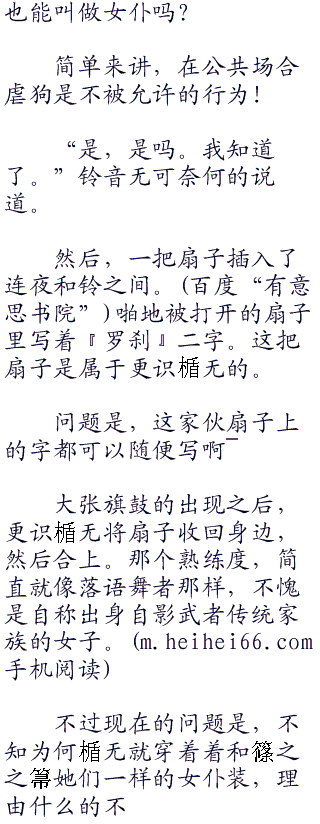 也能叫做女仆吗？
简单来讲，在公共场合
虐狗是不被允许的行为！
“是，是吗。我知道
了。”铃音无可奈何的说
道。
然后，一把扇子插入了
连夜和铃之间。(百度“有意
思书院”)啪地被打开的扇子
里写着『罗刹』二字。这把
扇子是属于更识楯无的。
问题是，这家伙扇子上
的字都可以随便写啊¯
大张旗鼓的出现之后，
更识楯无将扇子收回身边，
然后合上。那个熟练度，简
直就像落语舞者那样，不愧
是自称出身自影武者传统家
族的女子。(m.heihei66.com
手机阅读)
不过现在的问题是，不
知为何楯无就穿着着和篠之
之箒她们一样的女仆装，理
由什么的不